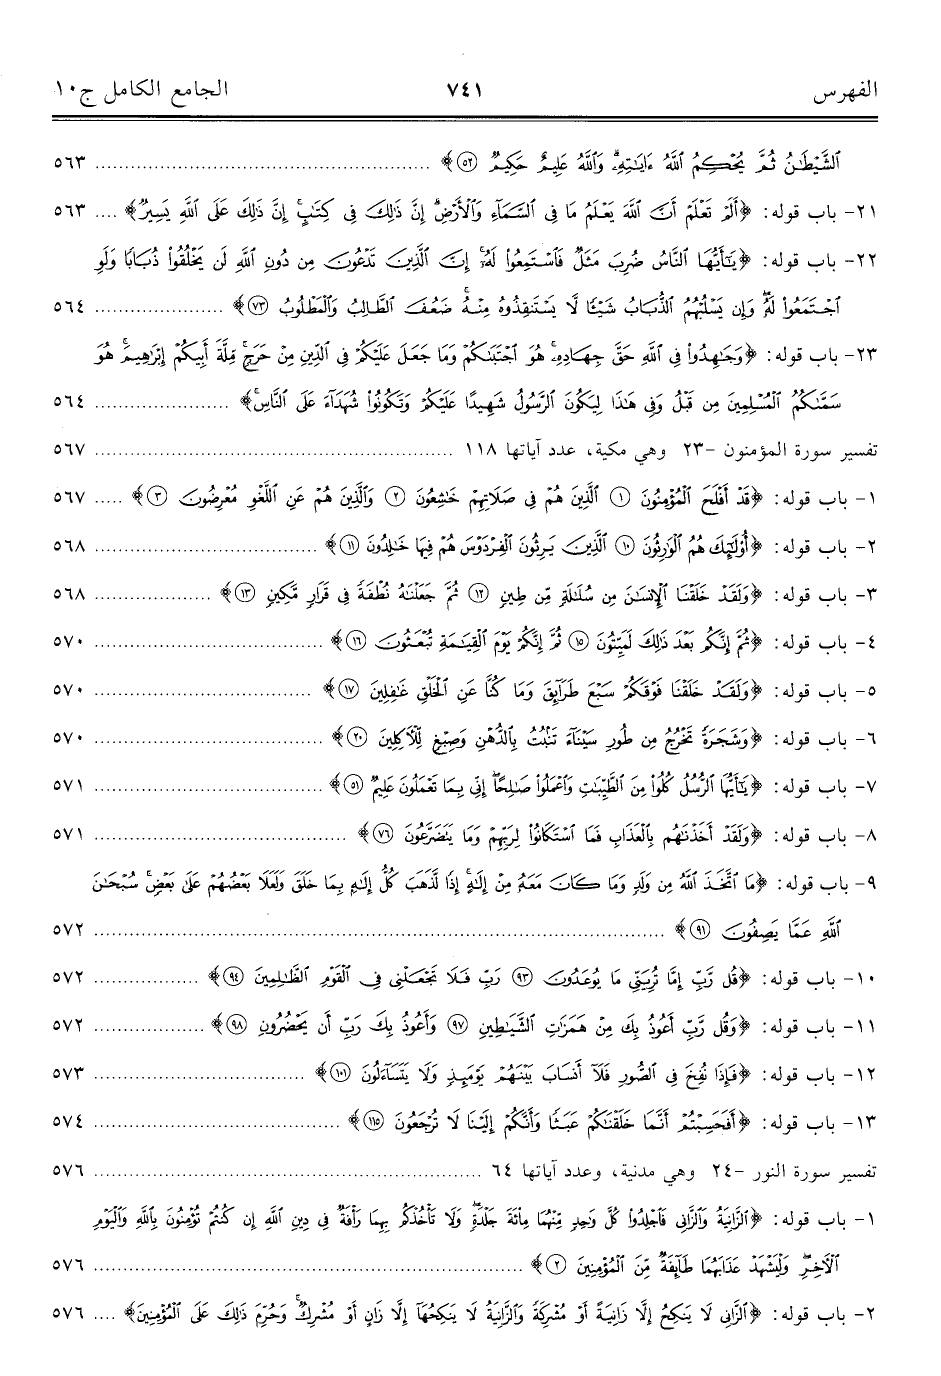 الفهرس ٧٤١ الجامع الكامل ج١٠
ٱلشَّيْطَٰنُ ثُمَّ يُحْكِمُ ٱللَّهُ ءَايَٰتِهِۦۗ وَٱللَّهُ عَلِيمٌ حَكِيمٌ ٥٢﴾ ........ ٥٦٣
٢١- باب قوله: ﴿أَلَمْ تَعْلَمْ أَنَّ ٱللَّهَ يَعْلَمُ مَا فِى ٱلسَّمَآءِ وَٱلْأَرْضِۗ إِنَّ ذَٰلِكَ فِى كِتَٰبٍۚ إِنَّ ذَٰلِكَ عَلَى ٱللَّهِ يَسِيرٌ﴾ .... ٥٦٣
٢٢- باب قوله: ﴿يَٰٓأَيُّهَا ٱلنَّاسُ ضُرِبَ مَثَلٌ فَٱسْتَمِعُوا۟ لَهُۥٓۚ إِنَّ ٱلَّذِينَ تَدْعُونَ مِن دُونِ ٱللَّهِ لَن يَخْلُقُوا۟ ذُبَابًا وَلَوِ
ٱجْتَمَعُوا۟ لَهُۥۖ وَإِن يَسْلُبْهُمُ ٱلذُّبَابُ شَيْـًٔا لَّا يَسْتَنقِذُوهُ مِنْهُۚ ضَعُفَ ٱلطَّالِبُ وَٱلْمَطْلُوبُ ٧٣﴾ ........ ٥٦٤
٢٣- باب قوله: ﴿وَجَٰهِدُوا۟ فِى ٱللَّهِ حَقَّ جِهَادِهِۦۚ هُوَ ٱجْتَبَىٰكُمْ وَمَا جَعَلَ عَلَيْكُمْ فِى ٱلدِّينِ مِنْ حَرَجٍۚ مِّلَّةَ أَبِيكُمْ إِبْرَٰهِيمَۚ هُوَ
سَمَّىٰكُمُ ٱلْمُسْلِمِينَ مِن قَبْلُ وَفِى هَٰذَا لِيَكُونَ ٱلرَّسُولُ شَهِيدًا عَلَيْكُمْ وَتَكُونُوا۟ شُهَدَآءَ عَلَى ٱلنَّاسِۚ﴾ ........ ٥٦٤
تفسير سورة المؤمنون -٢٣ وهي مكية، عدد آياتها ١١٨ ........ ٥٦٧
١- باب قوله: ﴿قَدْ أَفْلَحَ ٱلْمُؤْمِنُونَ ١ ٱلَّذِينَ هُمْ فِى صَلَاتِهِمْ خَٰشِعُونَ ٢ وَٱلَّذِينَ هُمْ عَنِ ٱللَّغْوِ مُعْرِضُونَ ٣﴾ ..... ٥٦٧
٢- باب قوله: ﴿أُو۟لَٰٓئِكَ هُمُ ٱلْوَٰرِثُونَ ١٠ ٱلَّذِينَ يَرِثُونَ ٱلْفِرْدَوْسَ هُمْ فِيهَا خَٰلِدُونَ ١١﴾ ........ ٥٦٨
٣- باب قوله: ﴿وَلَقَدْ خَلَقْنَا ٱلْإِنسَٰنَ مِن سُلَٰلَةٍ مِّن طِينٍ ١٢ ثُمَّ جَعَلْنَٰهُ نُطْفَةً فِى قَرَارٍ مَّكِينٍ ١٣﴾ ........ ٥٦٨
٤- باب قوله: ﴿ثُمَّ إِنَّكُم بَعْدَ ذَٰلِكَ لَمَيِّتُونَ ١٥ ثُمَّ إِنَّكُمْ يَوْمَ ٱلْقِيَٰمَةِ تُبْعَثُونَ ١٦﴾ ........ ٥٧٠
٥- باب قوله: ﴿وَلَقَدْ خَلَقْنَا فَوْقَكُمْ سَبْعَ طَرَآئِقَ وَمَا كُنَّا عَنِ ٱلْخَلْقِ غَٰفِلِينَ ١٧﴾ ........ ٥٧٠
٦- باب قوله: ﴿وَشَجَرَةً تَخْرُجُ مِن طُورِ سَيْنَآءَ تَنۢبُتُ بِٱلدُّهْنِ وَصِبْغٍ لِّلْءَاكِلِينَ ٢٠﴾ ........ ٥٧٠
٧- باب قوله: ﴿يَٰٓأَيُّهَا ٱلرُّسُلُ كُلُوا۟ مِنَ ٱلطَّيِّبَٰتِ وَٱعْمَلُوا۟ صَٰلِحًاۖ إِنِّى بِمَا تَعْمَلُونَ عَلِيمٌ ٥١﴾ ........ ٥٧١
٨- باب قوله: ﴿وَلَقَدْ أَخَذْنَٰهُم بِٱلْعَذَابِ فَمَا ٱسْتَكَانُوا۟ لِرَبِّهِمْ وَمَا يَتَضَرَّعُونَ ٧٦﴾ ........ ٥٧١
٩- باب قوله: ﴿مَا ٱتَّخَذَ ٱللَّهُ مِن وَلَدٍ وَمَا كَانَ مَعَهُۥ مِنْ إِلَٰهٍۚ إِذًا لَّذَهَبَ كُلُّ إِلَٰهٍۭ بِمَا خَلَقَ وَلَعَلَا بَعْضُهُمْ عَلَىٰ بَعْضٍۚ سُبْحَٰنَ
ٱللَّهِ عَمَّا يَصِفُونَ ٩١﴾ ........ ٥٧٢
١٠- باب قوله: ﴿قُل رَّبِّ إِمَّا تُرِيَنِّى مَا يُوعَدُونَ ٩٣ رَبِّ فَلَا تَجْعَلْنِى فِى ٱلْقَوْمِ ٱلظَّٰلِمِينَ ٩٤﴾ ........ ٥٧٢
١١- باب قوله: ﴿وَقُل رَّبِّ أَعُوذُ بِكَ مِنْ هَمَزَٰتِ ٱلشَّيَٰطِينِ ٩٧ وَأَعُوذُ بِكَ رَبِّ أَن يَحْضُرُونِ ٩٨﴾ ........ ٥٧٢
١٢- باب قوله: ﴿فَإِذَا نُفِخَ فِى ٱلصُّورِ فَلَآ أَنسَابَ بَيْنَهُمْ يَوْمَئِذٍ وَلَا يَتَسَآءَلُونَ ١٠١﴾ ........ ٥٧٣
١٣- باب قوله: ﴿أَفَحَسِبْتُمْ أَنَّمَا خَلَقْنَٰكُمْ عَبَثًا وَأَنَّكُمْ إِلَيْنَا لَا تُرْجَعُونَ ١١٥﴾ ........ ٥٧٤
تفسير سورة النور -٢٤ وهي مدنية، وعدد آياتها ٦٤ ........ ٥٧٦
١- باب قوله: ﴿ٱلزَّانِيَةُ وَٱلزَّانِى فَٱجْلِدُوا۟ كُلَّ وَٰحِدٍ مِّنْهُمَا مِا۟ئَةَ جَلْدَةٍۖ وَلَا تَأْخُذْكُم بِهِمَا رَأْفَةٌ فِى دِينِ ٱللَّهِ إِن كُنتُمْ تُؤْمِنُونَ بِٱللَّهِ وَٱلْيَوْمِ
ٱلْءَاخِرِۖ وَلْيَشْهَدْ عَذَابَهُمَا طَآئِفَةٌ مِّنَ ٱلْمُؤْمِنِينَ ٢﴾ ........ ٥٧٦
٢- باب قوله: ﴿ٱلزَّانِى لَا يَنكِحُ إِلَّا زَانِيَةً أَوْ مُشْرِكَةً وَٱلزَّانِيَةُ لَا يَنكِحُهَآ إِلَّا زَانٍ أَوْ مُشْرِكٌۚ وَحُرِّمَ ذَٰلِكَ عَلَى ٱلْمُؤْمِنِينَ﴾ .... ٥٧٦